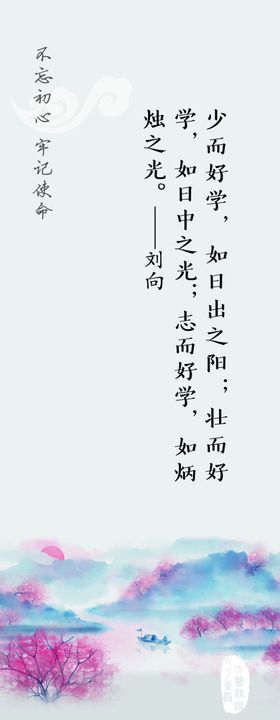 少而好学，如日出之阳；壮而好
学，如日中之光；志而好学，如炳
烛之光。——刘向
不忘初心 牢记使命